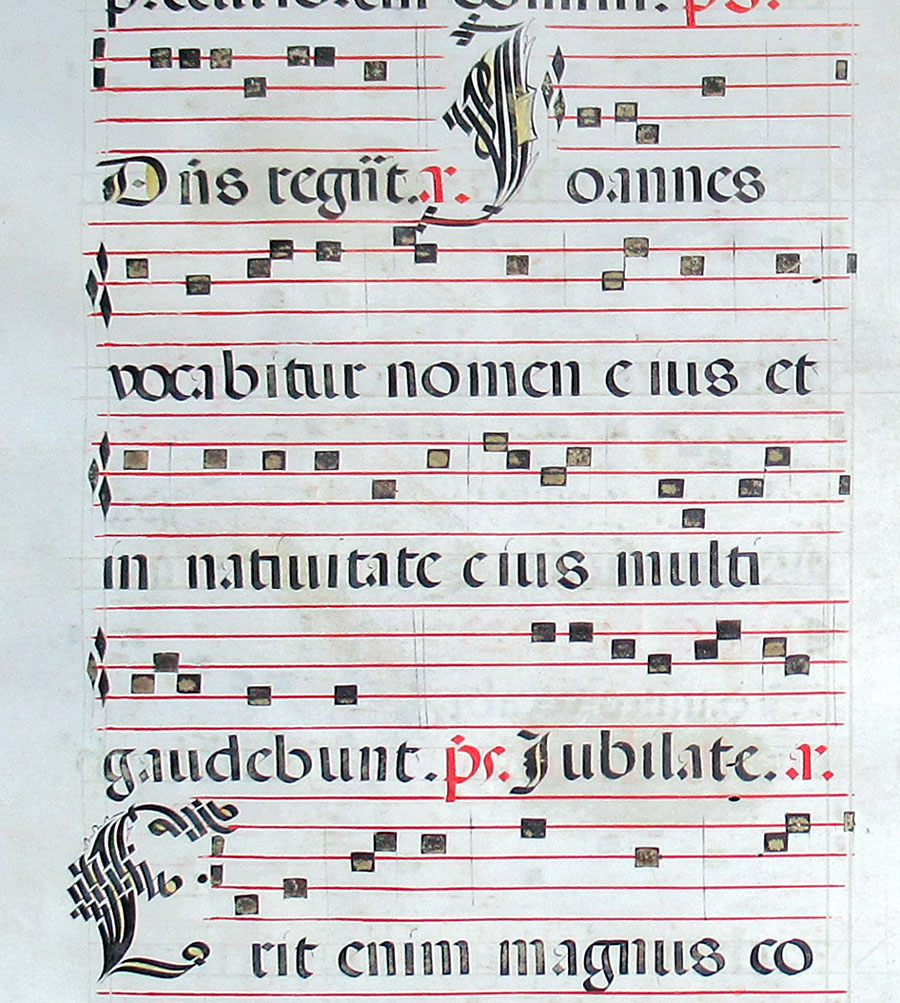 ps.
Dn̄s regn̄it. a. Joannes
vocabitur nomen eius et
in natiuitate eius multi
gaudebunt. ps. Jubilate. a.
Erit enim magnus co